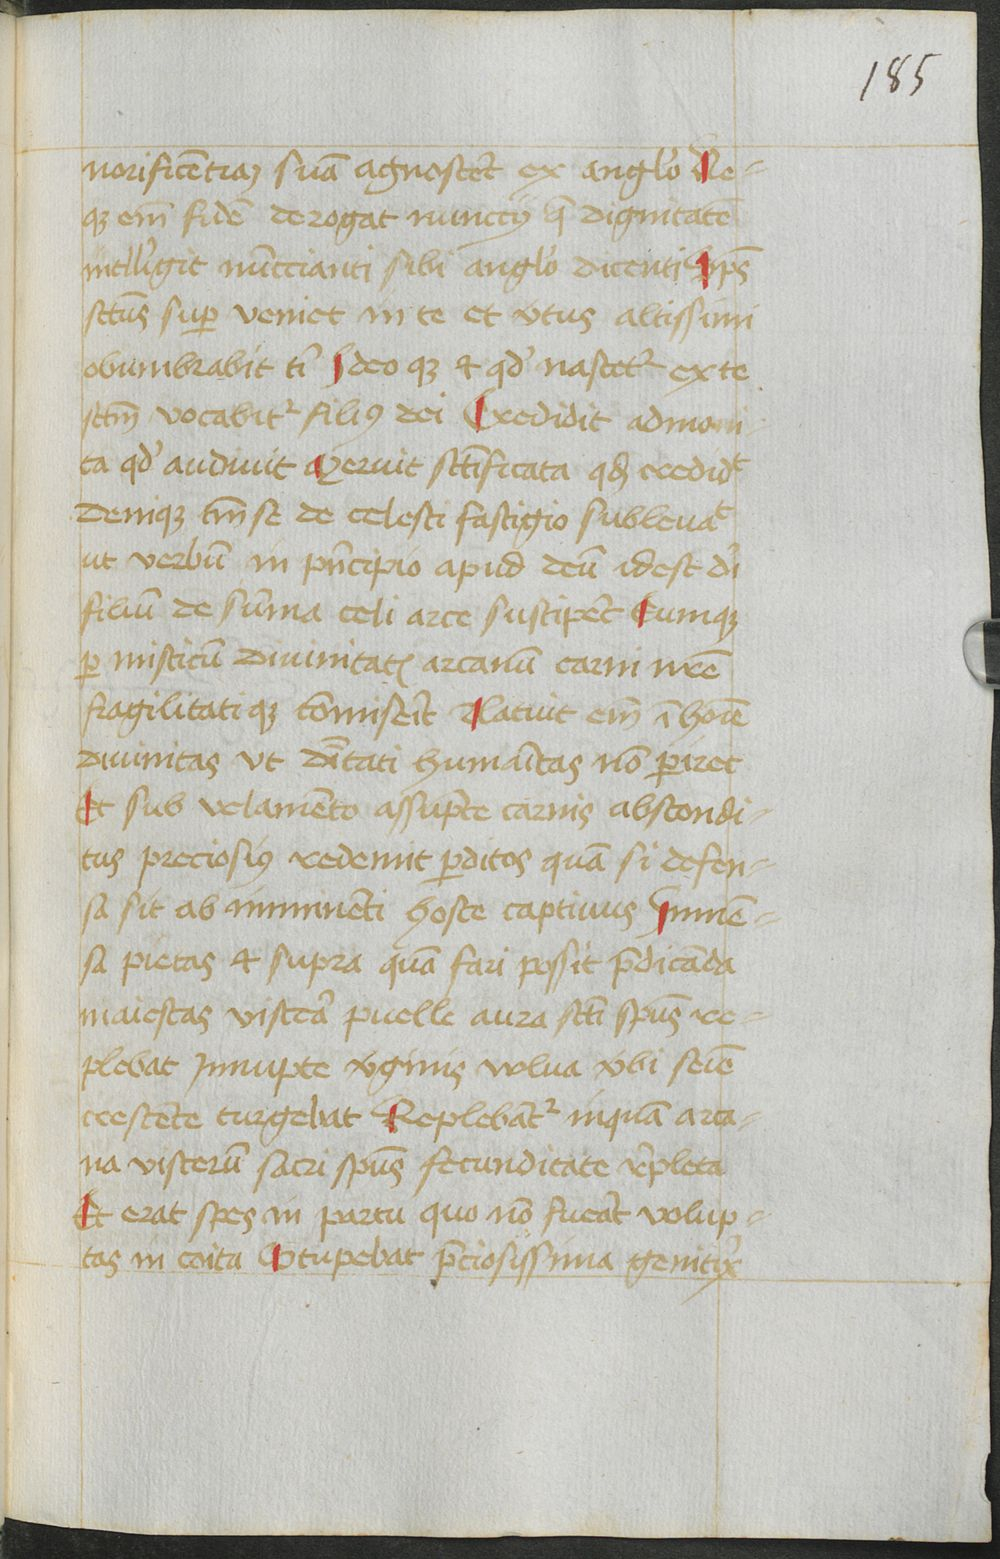 185
norificētiaꝫ suā agnosceēt ex angl'o Ne-
qꝫ em̄ fidē derogat nunccij q̄ dignitatē
intell'igit nūccianti sibi angl'o dicenti Sp̄s
sctūs sup veniet in te et v̓tus altissimi
obumbrabit ti Ideo qꝫ & qd' nascet² ex te
sctm̄ vocabit² filiꝯ dei Credidit admoni-
ta qd' audiuit Meruit sctīficata qd' credidᵗ
deniqꝫ tm̄ se de celesti fastigio subleuaᵗ
ut verbū in pn̄cipio apud deū idest di
filiū de sūma celi arce susciperēt Cumqꝫ
p misticū diuinitatꝭ arcanū carni nr̄e
fragilitati qꝫ cōmiscēt Latuit em̄ ī hoīe
diuinitas ut dīitati humaītas nō piret
Et sub velamēto assūpte carnis abscondi-
tus preciosiꝯ redemit pditos quā si defen-
sa sit ab imminēti hoste captiuus Immē-
sa pietas & supra quā fari possit p̄dicāda
maiestas viscēa puelle aura scti spūs re-
plebat Innupte v̓ginis volua v̓bi semē
crescēte turgebat Replebāt² inquā arca-
na viscerū sacri spūs fecunditate repleta
Et erat spes in partu quo nō fuēat volup-
tas in coitu Stupebat p̄ciosissima genitrix